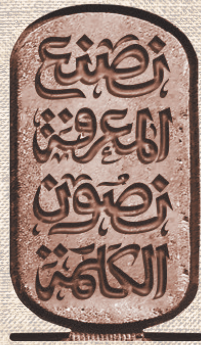 نصنع
المعرفة
نصون
الكلمة